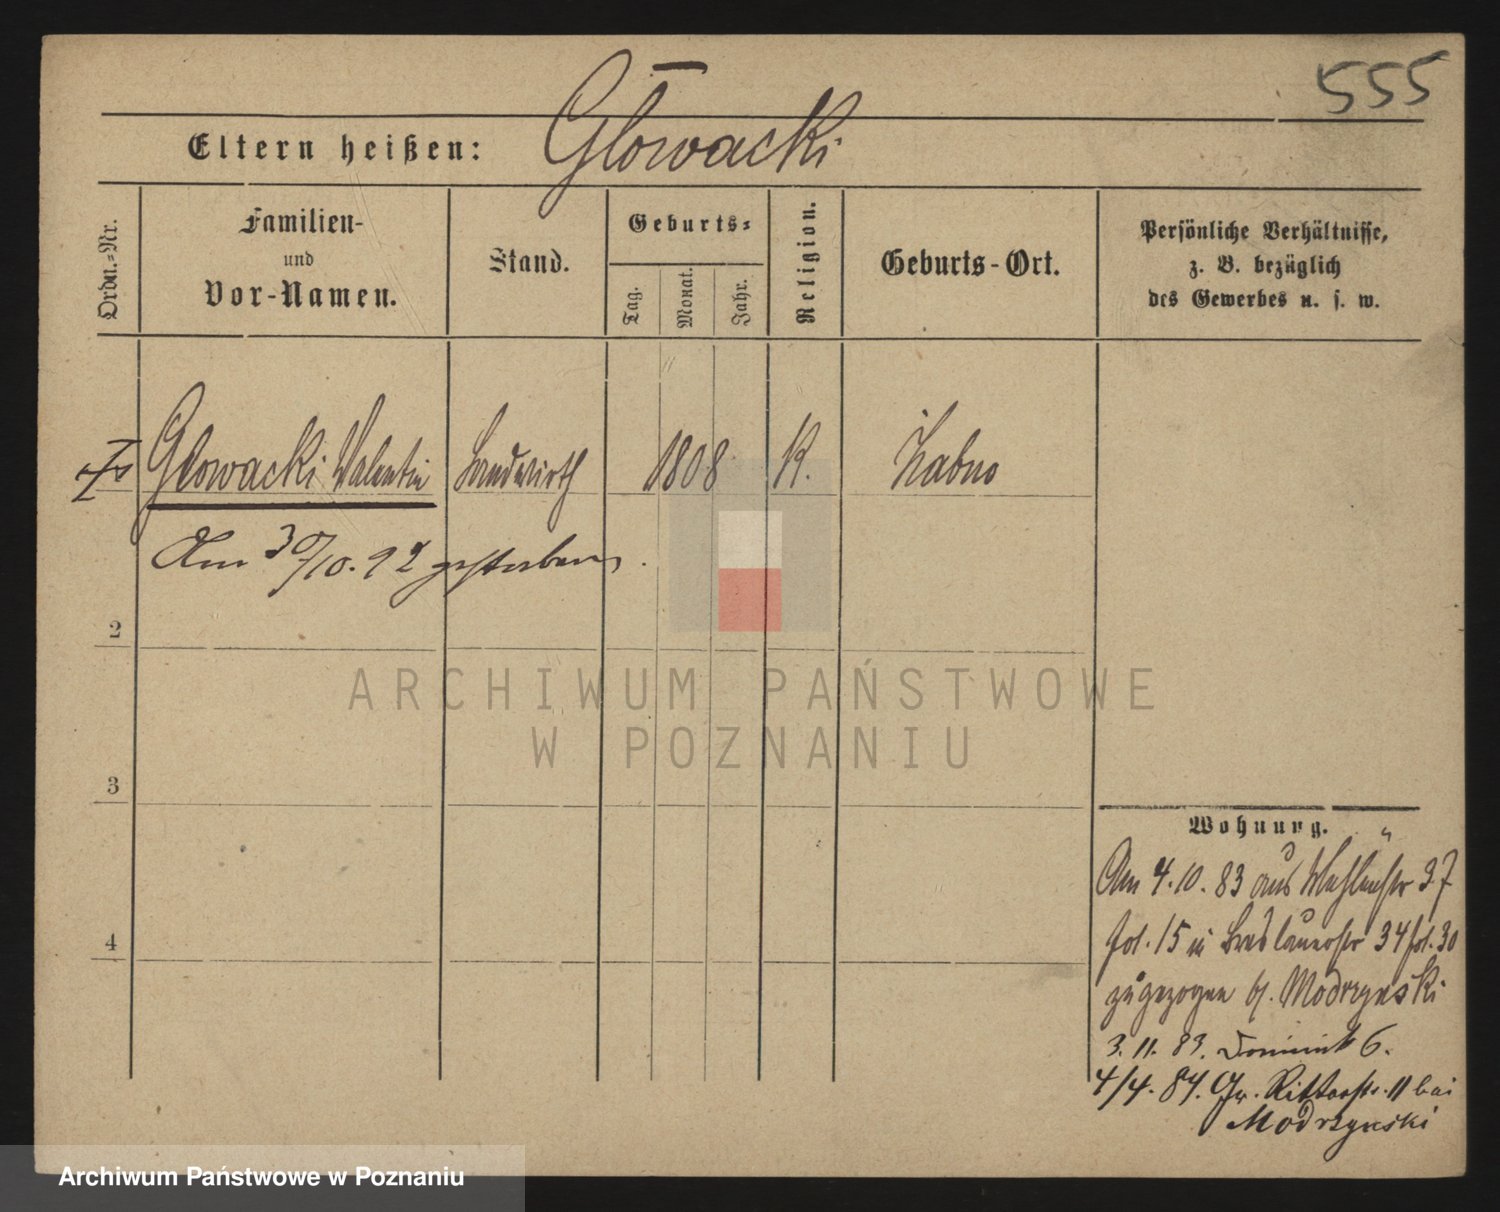 555
Eltern heißen: Głowacki
Ordn.-Nr.
Familien-
und
Vor-Namen.
Stand.
Geburts-
Tag.
Monat.
Jahr.
Religion.
Geburts-Ort.
Persönliche Verhältnisse,
z. B. bezüglich
des Gewerbes u. s. w.
Glowacki Valentin Landwirth 1808 K. Żabno
Am 30/10. 92 gestorben.
2
3
4
Wohnung.
Am 4. 10. 83 aus 37
fol. 15 in Breslauerstr 34 fol. 30
zugezogen b/. Modrzynski
3. 11. 83. Dominik 6.
4/4. 84. Gr. Ritterstr. 11 bei
Modrzynski
ARCHIWUM PAŃSTWOWE
W POZNANIU
Archiwum Państwowe w Poznaniu